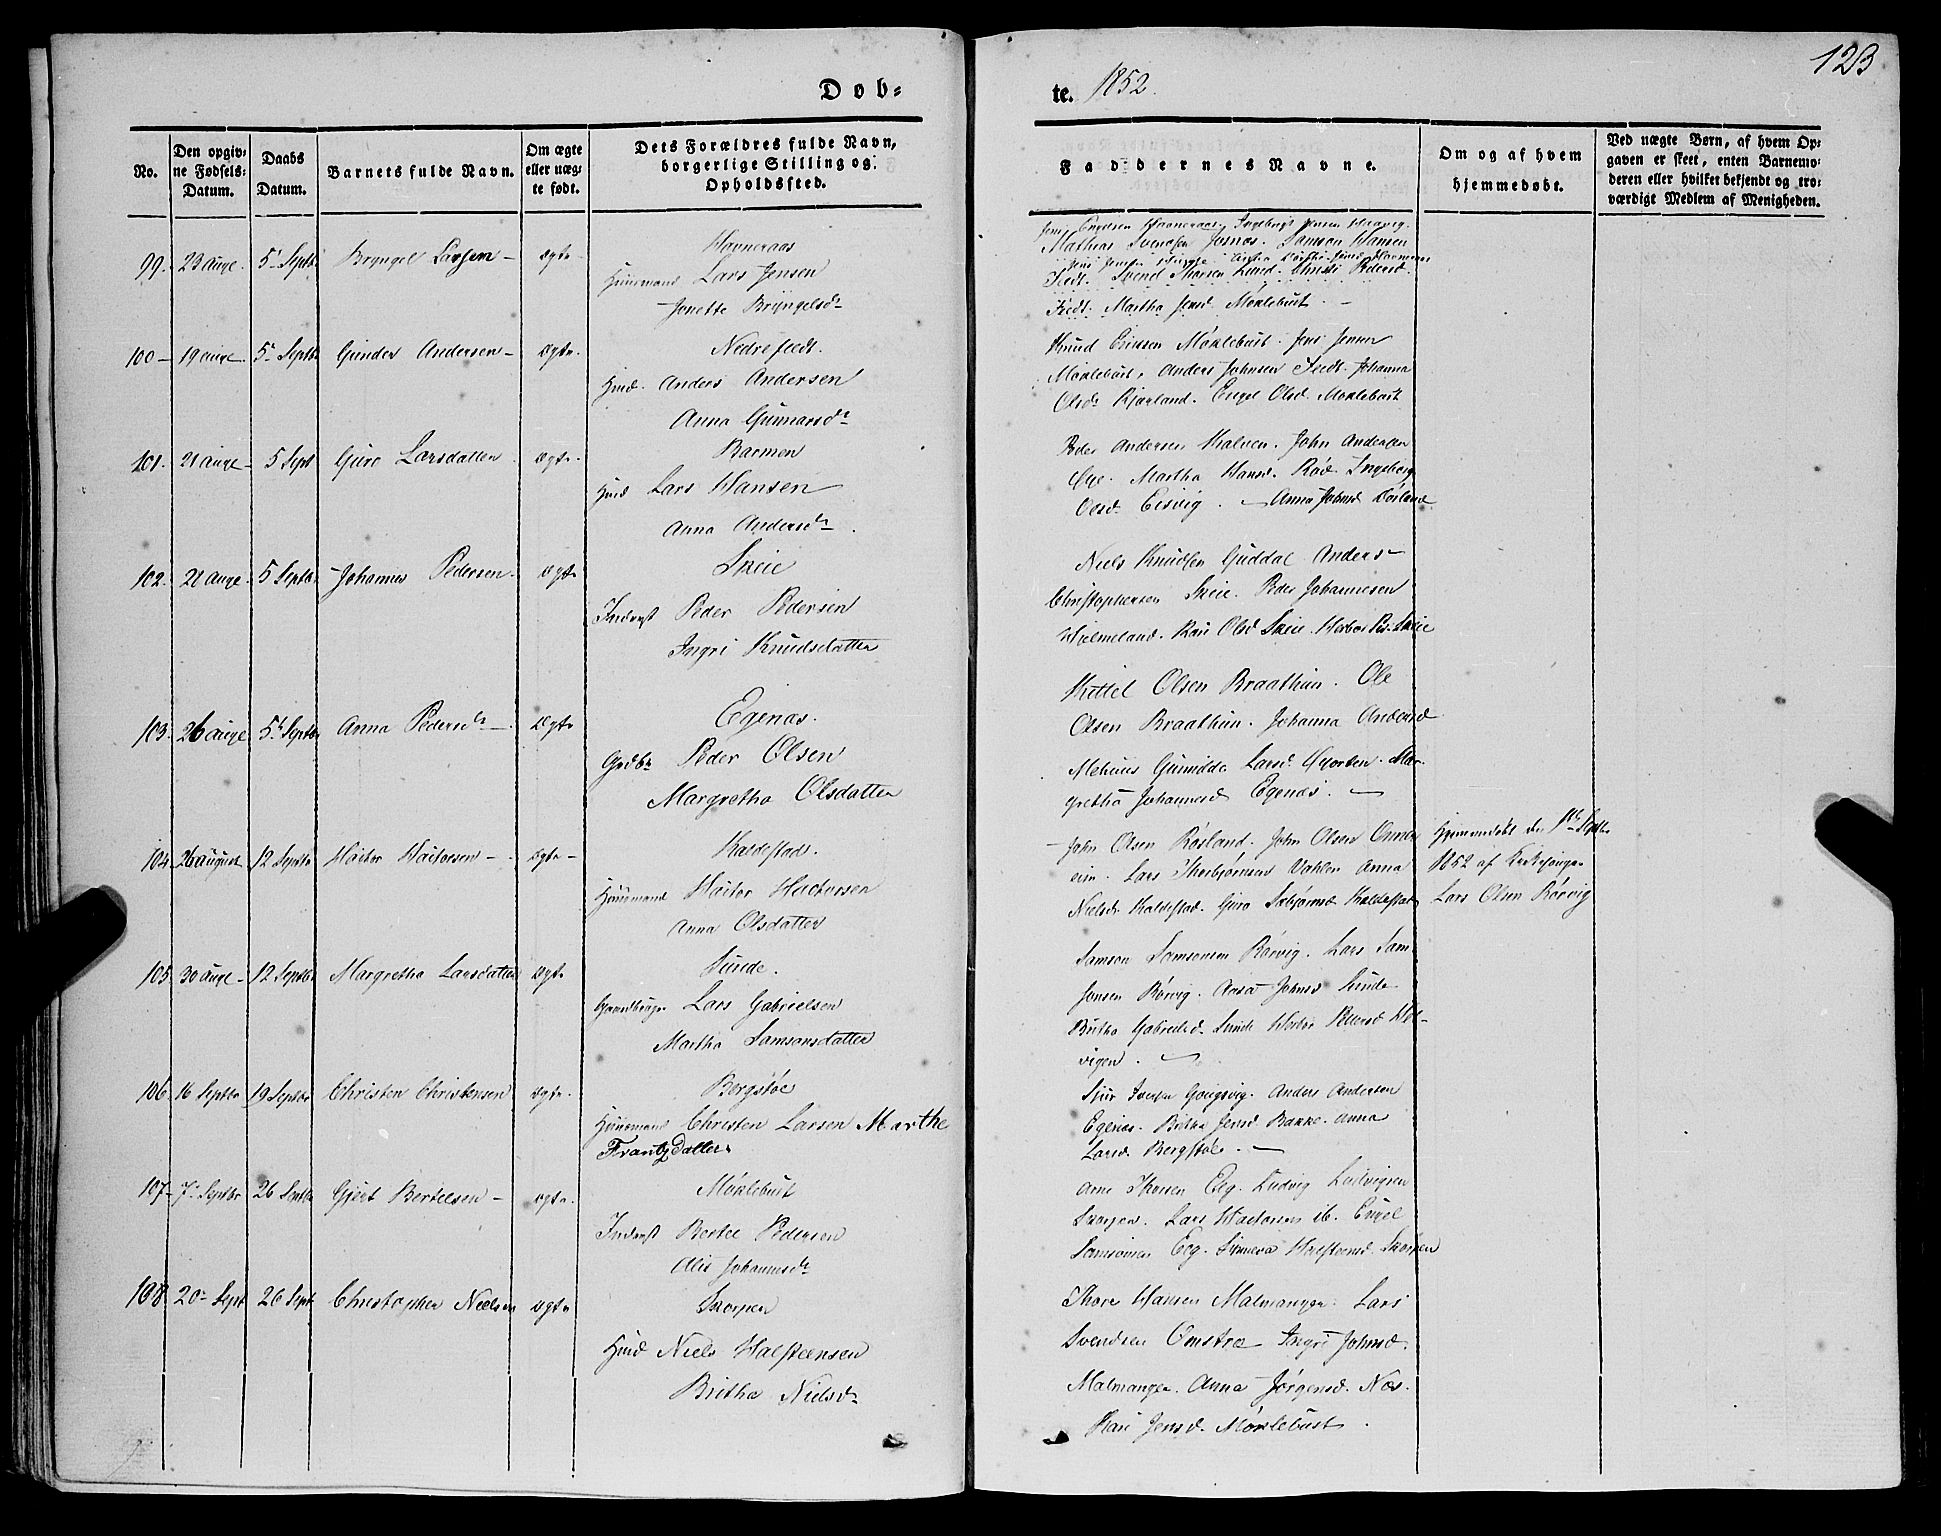 123
Dob=
te. 1852.
No.
Den opgiv=
ne Fødsels=
Datum.
Daabs
Datum.
Barnets fulde Navn.
Om ægte
eller uæg=
te født.
Dets Forældres fulde Navn,
borgerlige Stilling og
Opholdssted.
Faddernes Navne.
Om og af hvem
hjemmedøbt.
Ved uægte Børn, af hvem Op=
gaven er skeet, enten Barnemo=
deren eller hvilket bekjendt og tro=
værdigt Medlem af Menigheden.
99. 23 Augs. 5 Septb. Bryngel Larsen - ægte
Havneraas
Huusmand Lars Jensen
Jonette Bryngelsdr
Mathias Svendsen Samson Hansen
Tvedt. Svend Thorsen Lund. Christi Pedersd.
Tvedt. Martha Jensd. Møklebust. -
100 - 19 Augs. 5 Septb. Gunder Andersen - ægte.
Nedretvedt.
Huusd. Anders Andersen
Anna Gunnarsdr
Knud Ericksen Møklebust. Jens Jensen
Møklebust, Anders Johnsen Tvedt. Johanna
Olsdr Kjærland. Engel Olsd Møklebust
101. 21 Augs - 5 Sept Guro Larsdatter ægte.
Barmen
Huusd Lars Hansen
Anna Andersdr.
Peder Andersen Hatven. John Andersen
Martha Hansd. Rød. Ingeborg
Olsd. Eisvig. - Anna Johnsd Røsland
102. 21 Augs. 5 Septb. Johannes Pedersen. ægte
Skeie
Inderst Peder Pedersen
Ingri Knudsdatter
Niels Knudsen Guddal Anders
Christophersen Skeie. Peder Johannesen
Hielmeland. Kari Olsd Skeie. Herbor Skeie
103. 26 Augs 5 Septb. Anna Pedersdr - ægte
Egenæs.
Gdbr Peder Olsen
Margretha Olsdatter
Kittel Olsen Braathun. Ole
Olsen Braathun. Johanna Andersd
Melhuus Gunilda Larsd. Mar-
gretha Johannesd Egenæs. -
104. 26 August 12 Septb. Hactor Hactorsen - ægte -
Kaldestad.
Huusmand Hactor Hactorsen
Anna Olsdatter
John Olsen Røsland. John Olsen
eim. Lars Thorbjørnsen Vahlen Anna
Nielsdr Kaldestad. Guro Kaldestad
Hjemmedøbt den 1 Septbr
1852 af Kirkesanger
Lars Olsen Rørvig
105. 30 Augs - 12 Septbr Margretha Larsdatter ægte
Sunde.
Gaardbruger Lars Gabrielsen
Martha Samsonsdatter
Samson Samsonsen Rørvig. Lars Sam-
sonsen Rørvig. Aasa Johnsd Sunde
Britha Gabrielsd. Sunde Herbor Pedersd
vigen. -
106. 16 Septbr 19 Septbr Christen Christensen ægte.
Bergstøe
Huusmand Christen Larsen Marthe
FrantzDatter
Sjur Gongsvig. Anders Andersen
Egenæs. Britha Jensd Bakke. Anna
Larsd. Bergstøe. -
107 - 7 Septbr 26 Septbr Gjert Bertelsen - ægte.
Møklebust
Inderst Bertel Pedersen
Alis Johannesdr
Arne Thorsen Eeg. Ludvig Ludvigsen
Skorpen. Lars Hactorsen ib. Engel
Samsonsd Eeg. Synneva Halsteensd. Skorpen
108. 20 Sept 26 Sept Christopher Nielsen ægte
Skorpen
Huusd Niels Halsteensen
Britha Nielsdr
Thore Hansen Malmanger. Lars
Svendsen Omstræ Ingri Johnsd.
Malmanger. Anna Jørgensd. Næs.
Kari Jensd. Møklebust.